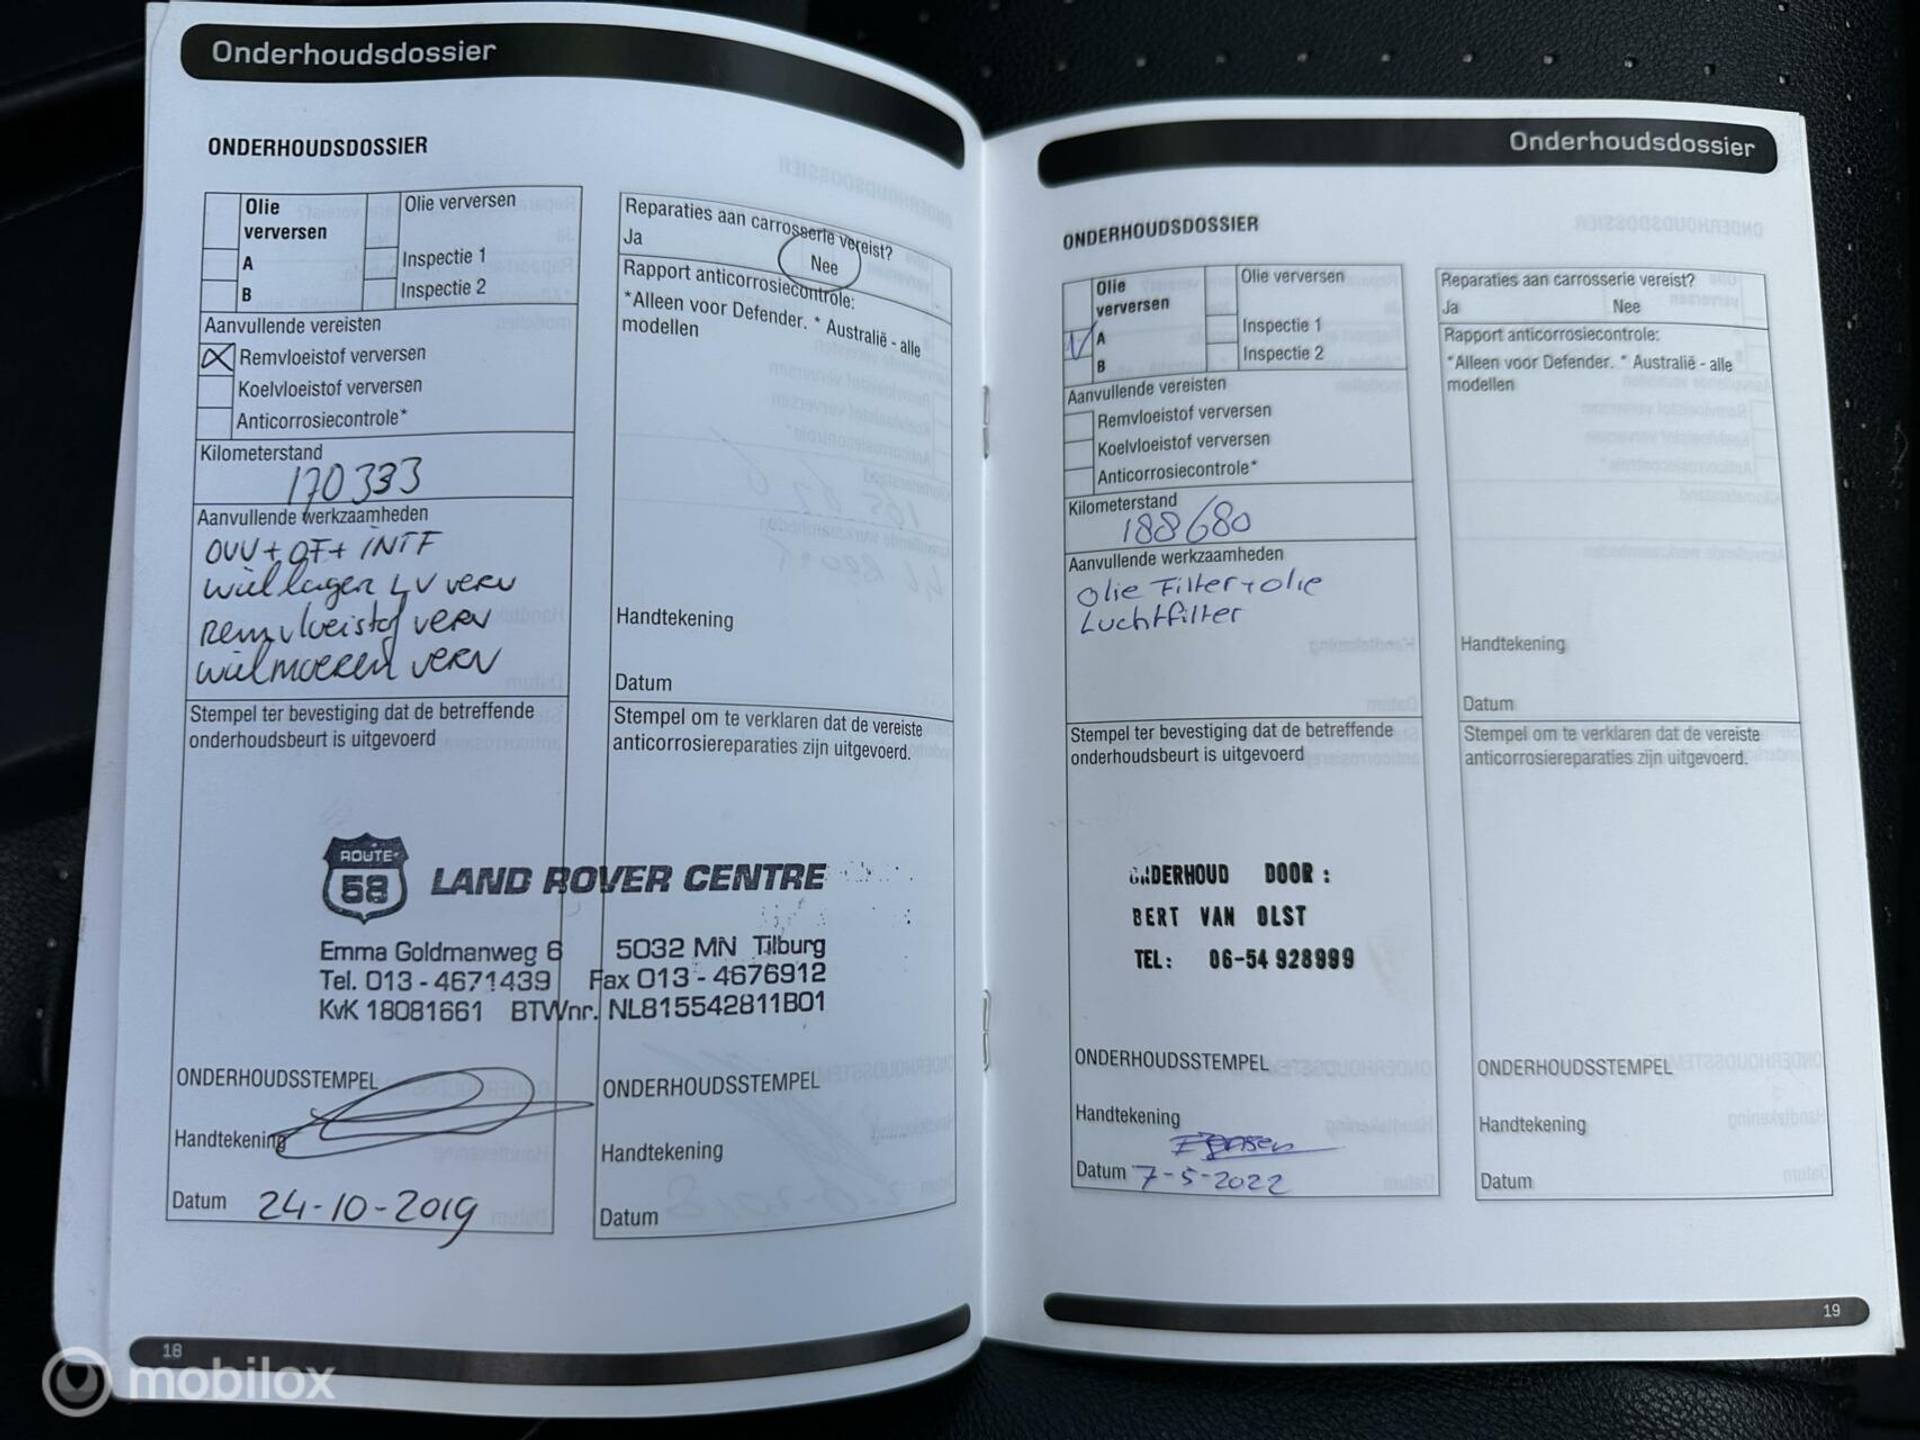 Onderhoudsdossier
ONDERHOUDSDOSSIER
Olie
verversen
Olie verversen
A
Inspectie 1
B
Inspectie 2
Aanvullende vereisten
Remvloeistof verversen
Koelvloeistof verversen
Anticorrosiecontrole*
Kilometerstand
170333
Aanvullende werkzaamheden
OVV + OF + INTF
wiellager LV verv
Remvloeistof verv
wielmoeren verv
Stempel ter bevestiging dat de betreffende
onderhoudsbeurt is uitgevoerd
Reparaties aan carrosserie vereist?
Ja Nee
Rapport anticorrosiecontrole:
*Alleen voor Defender. * Australië - alle
modellen
Handtekening
Datum
Stempel om te verklaren dat de vereiste
anticorrosiereparaties zijn uitgevoerd.
ROUTE
58
LAND ROVER CENTRE
Emma Goldmanweg 6 5032 MN Tilburg
Tel. 013 - 4671439 Fax 013 - 4676912
KvK 18081661 BTWnr. NL815542811B01
ONDERHOUDSSTEMPEL
Handtekening
Datum 24-10-2019
ONDERHOUDSSTEMPEL
Handtekening
Datum
18
Onderhoudsdossier
ONDERHOUDSDOSSIER
Olie
verversen
Olie verversen
A
Inspectie 1
B
Inspectie 2
Aanvullende vereisten
Remvloeistof verversen
Koelvloeistof verversen
Anticorrosiecontrole*
Kilometerstand
188680
Aanvullende werkzaamheden
Olie Filter + olie
Luchtfilter
Stempel ter bevestiging dat de betreffende
onderhoudsbeurt is uitgevoerd
ONDERHOUD DOOR :
BERT VAN OLST
TEL: 06-54 928999
ONDERHOUDSSTEMPEL
Handtekening
Datum 7-5-2022
Reparaties aan carrosserie vereist?
Ja Nee
Rapport anticorrosiecontrole:
*Alleen voor Defender. * Australië - alle
modellen
Handtekening
Datum
Stempel om te verklaren dat de vereiste
anticorrosiereparaties zijn uitgevoerd.
ONDERHOUDSSTEMPEL
Handtekening
Datum
19
mobilox